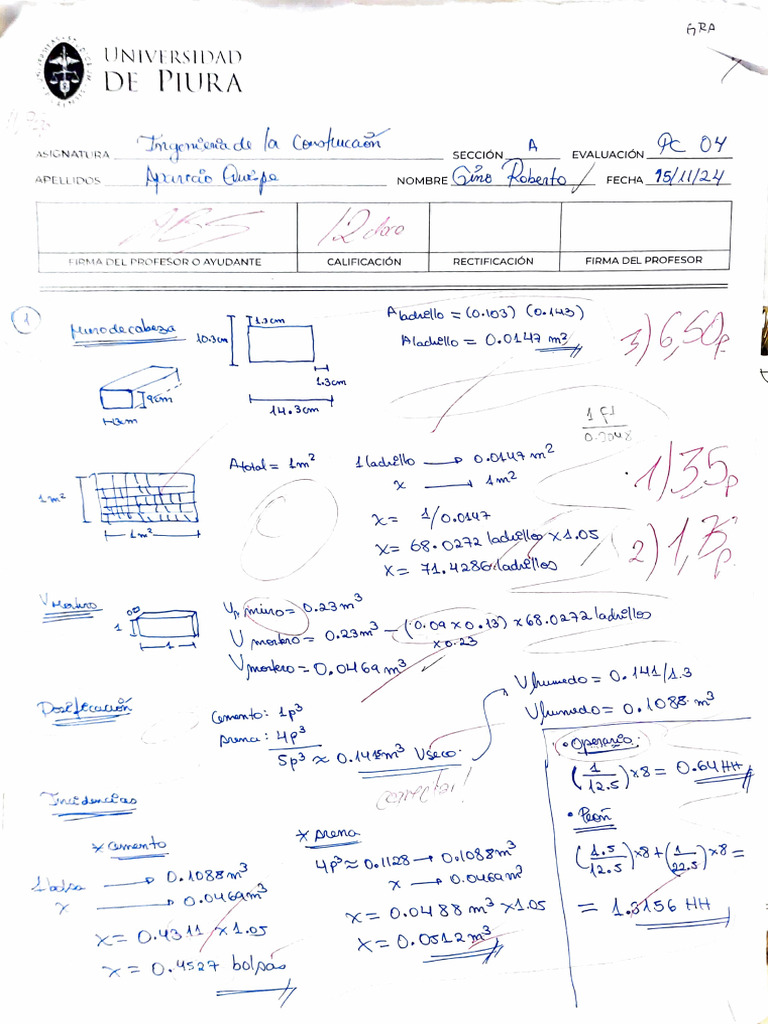 GRA
UNIVERSIDAD
DE PIURA
ASIGNATURA Ingenieria de la Construcción SECCIÓN A EVALUACIÓN PC 04
APELLIDOS Aparicio Quispe NOMBRE Gino Roberto FECHA 15/11/24
12 doce
FIRMA DEL PROFESOR O AYUDANTE CALIFICACIÓN RECTIFICACIÓN FIRMA DEL PROFESOR
1 Muro de cabeza
10.3cm
1.3cm
1.3cm
14.3cm
9cm
13cm
A ladrillo = (0.103) (0.143)
A ladrillo = 0.0147 m²
3) 6,50p.
1 m²
1 m²
A total = 1m²
1 ladrillo → 0.0147 m²
x → 1m²
x = 1/0.0147
x = 68.0272 ladrillos x 1.05
x = 71.4286 ladrillos
1) 3,5p
V mortero
1
1
V muro = 0.23 m³
V mortero = 0.23m³ - (0.09 x 0.13) x 68.0272 ladrillos
x 0.23
V mortero = 0.0469 m³
Dosificación
Cemento: 1p³
Arena: 4p³
5p³ ≈ 0.1415m³ Vseco.
V humedo = 0.141/1.3
V humedo = 0.1088 m³
Incidencias
* Cemento
1 bolsa → 0.1088m³
x → 0.0469m³
x = 0.4311 x 1.05
x = 0.4527 bolsas
* Arena
4p³ ≈ 0.1128 → 0.1088m³
x → 0.0469m³
x = 0.0488 m³ x 1.05
x = 0.0512 m³
• Operario
(1/12.5) x 8 = 0.64 HH
• Peón
(1.5/12.5) x 8 + (1/22.5) x 8 =
= 1.3156 HH